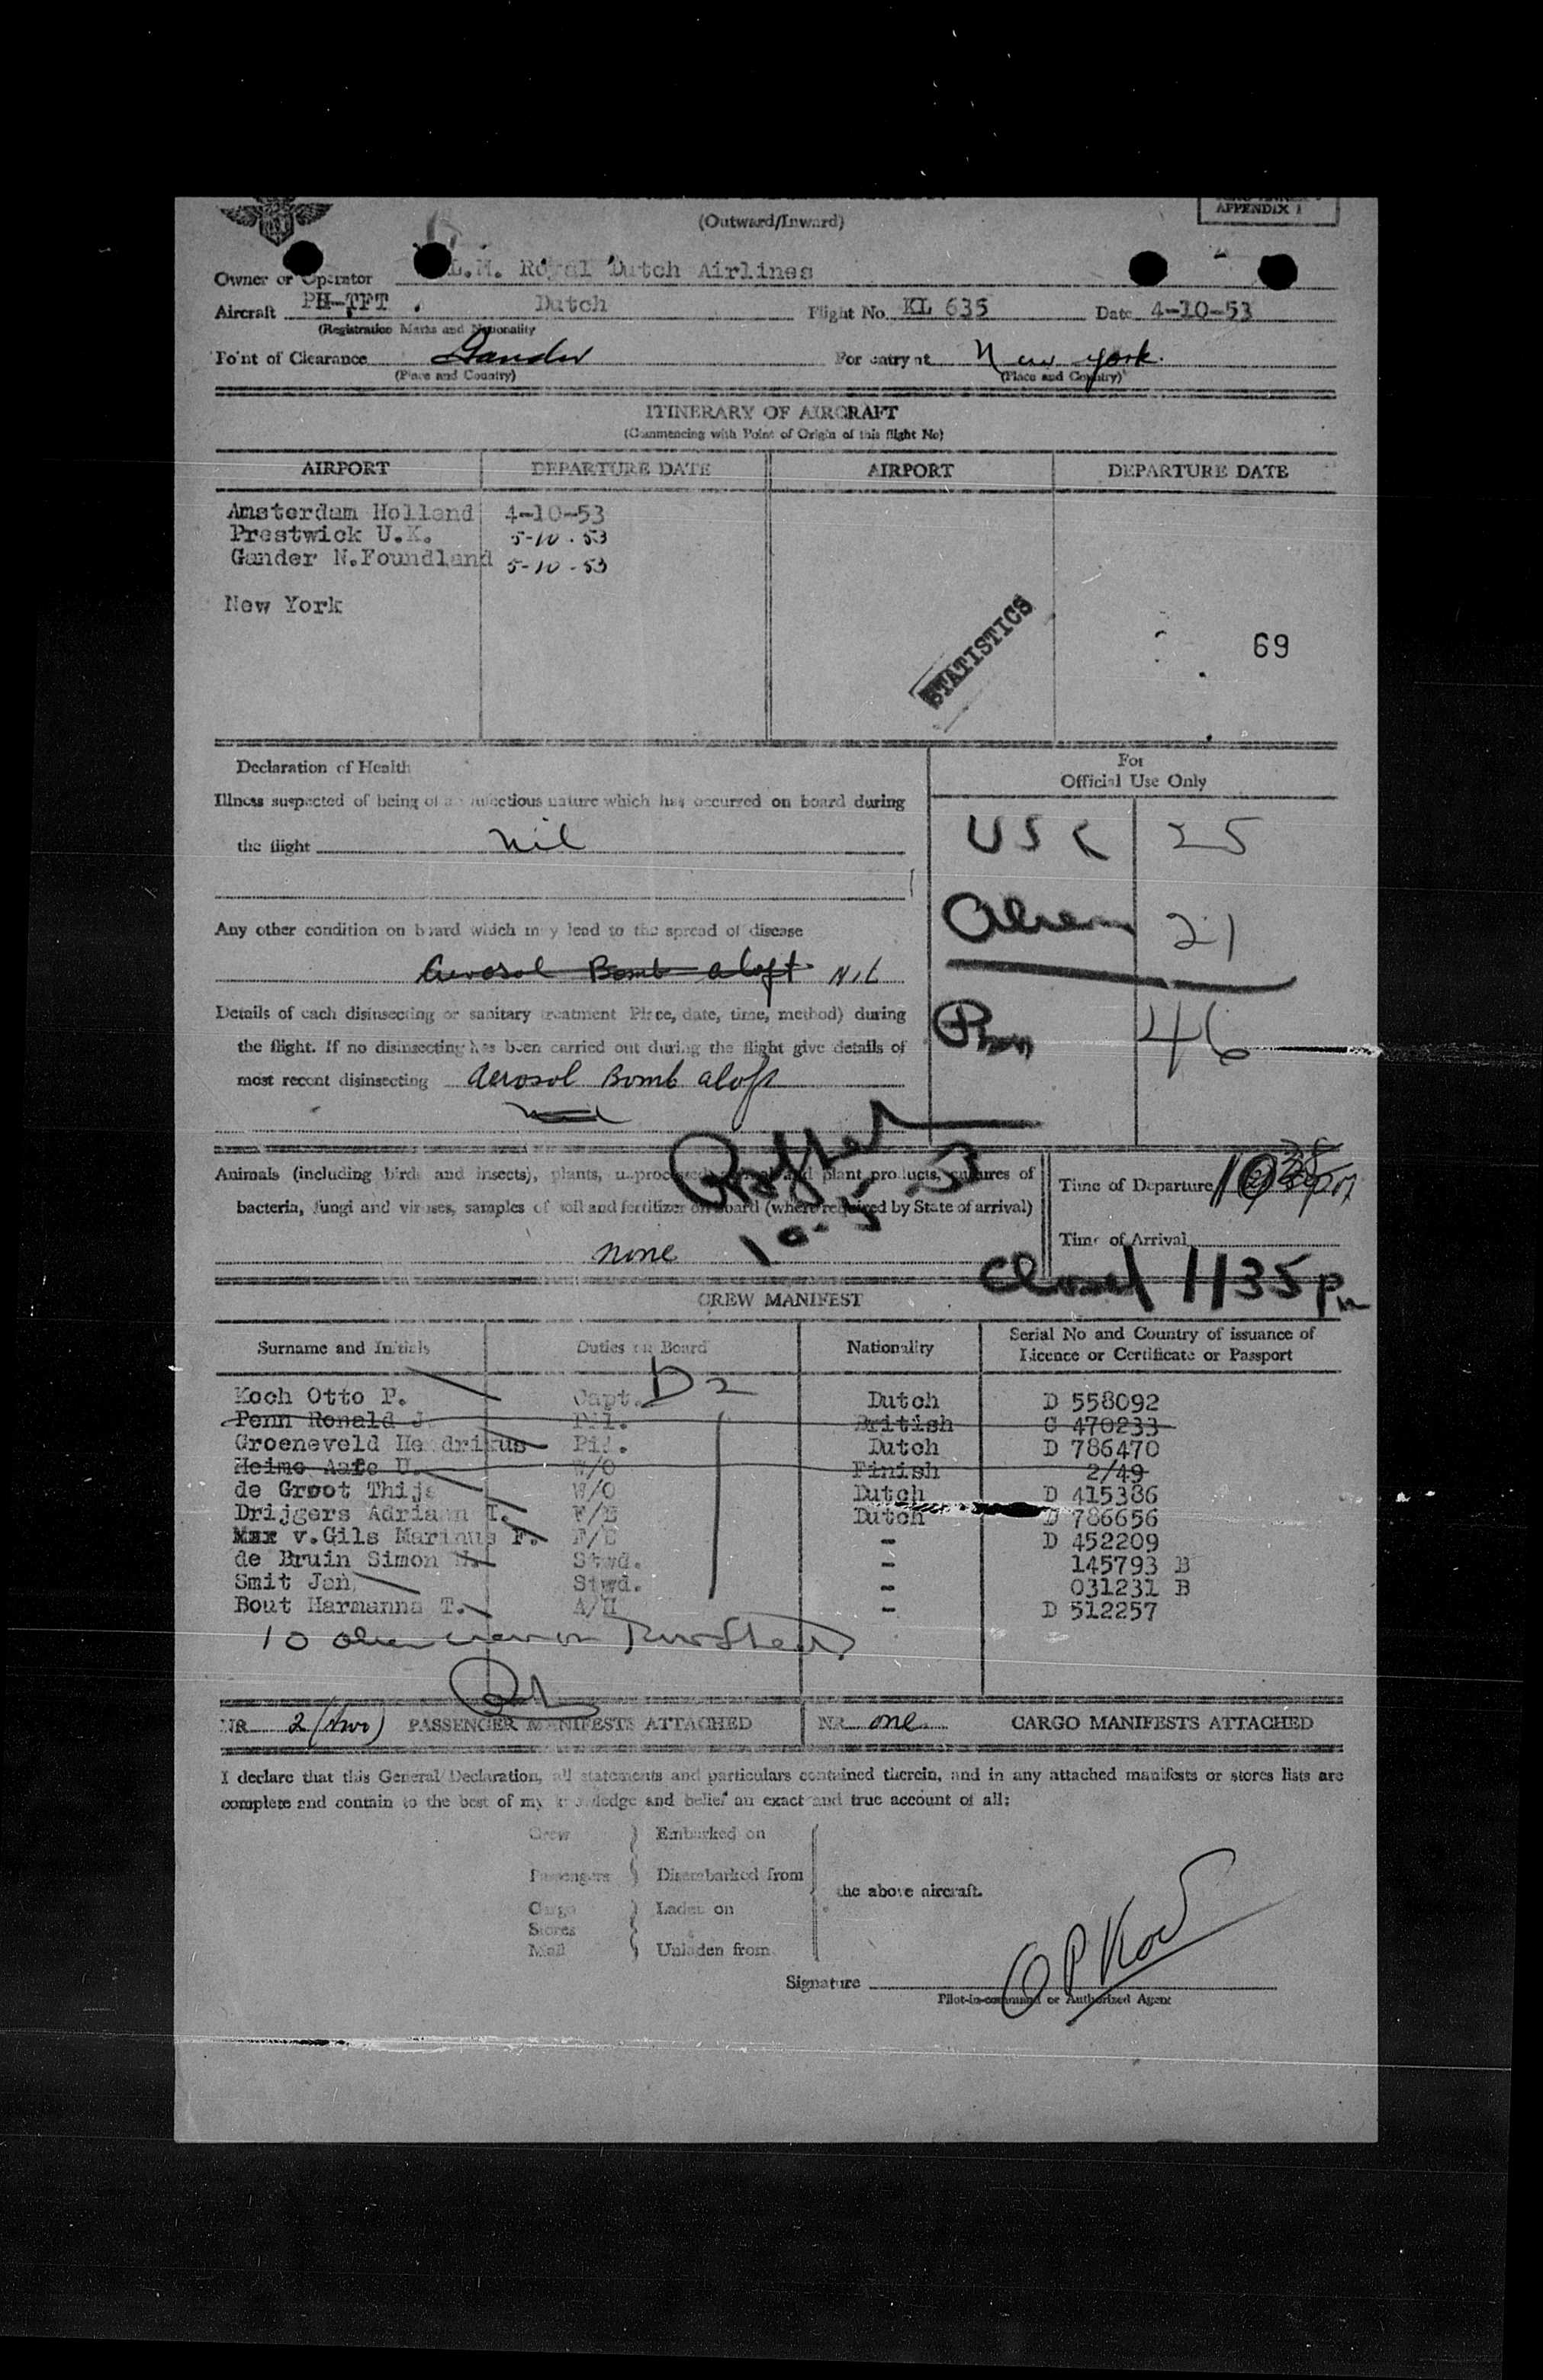 APPENDIX 1
(Outward/Inward)
Owner or Operator L.M. Royal Dutch Airlines
Aircraft PH-TFT Dutch Flight No. KL 635 Date 4-10-53
(Registration Marks and Nationality
Point of Clearance Gander For entry at New York.
(Place and Country) (Place and Country)
ITINERARY OF AIRCRAFT
(Commencing with Point of Origin of this flight No)
AIRPORT DEPARTURE DATE AIRPORT DEPARTURE DATE
Amsterdam Holland 4-10-53
Prestwick U.K. 5-10-53
Gander N.Foundland 5-10-53
New York
STATISTICS
69
Declaration of Health
For
Official Use Only
Illness suspected of being of an infectious nature which has occurred on board during
the flight nil
USC 25
Any other condition on board which may lead to the spread of disease
Alien 21
Aerosol Bomb aloft Nil
Details of each disinsecting or sanitary treatment Place, date, time, method) during
46
the flight. If no disinsecting has been carried out during the flight give details of
most recent disinsecting Aerosol Bomb aloft
10-5-53
Animals (including birds and insects), plants, unprocessed animal and plant products, cultures of
bacteria, fungi and viruses, samples of soil and fertilizer on board (where required by State of arrival)
none
Time of Departure 1035 pm
Time of Arrival
Closed 1135 pm
CREW MANIFEST
Surname and Initials Duties on Board Nationality Serial No and Country of issuance of
Licence or Certificate or Passport
D2
Koch Otto P. Capt. Dutch D 558092
Penn Ronald J. Pil. British C 470233
Groeneveld Hendrikus Pil. Dutch D 786470
Heimo Aate U. W/O Finish 2/49
de Groot Thijs W/O Dutch D 415386
Drijgers Adriaan T. F/E Dutch D 786656
v.Gils Marinus F. F/E - D 452209
de Bruin Simon N. Stwd. - 145793 B
Smit Jan Stwd. - 031231 B
Bout Harmanna T. A/H - D 512257
10 alien
NR 2 (two) PASSENGER MANIFESTS ATTACHED NR one CARGO MANIFESTS ATTACHED
I declare that this General Declaration, all statements and particulars contained therein, and in any attached manifests or stores lists are
complete and contain to the best of my knowledge and belief an exact and true account of all:
Crew Embarked on
Passengers Disembarked from
the above aircraft.
Cargo Laden on
Stores
Mail Unladen from
Signature OP Koch
Pilot-in-command or Authorized Agent